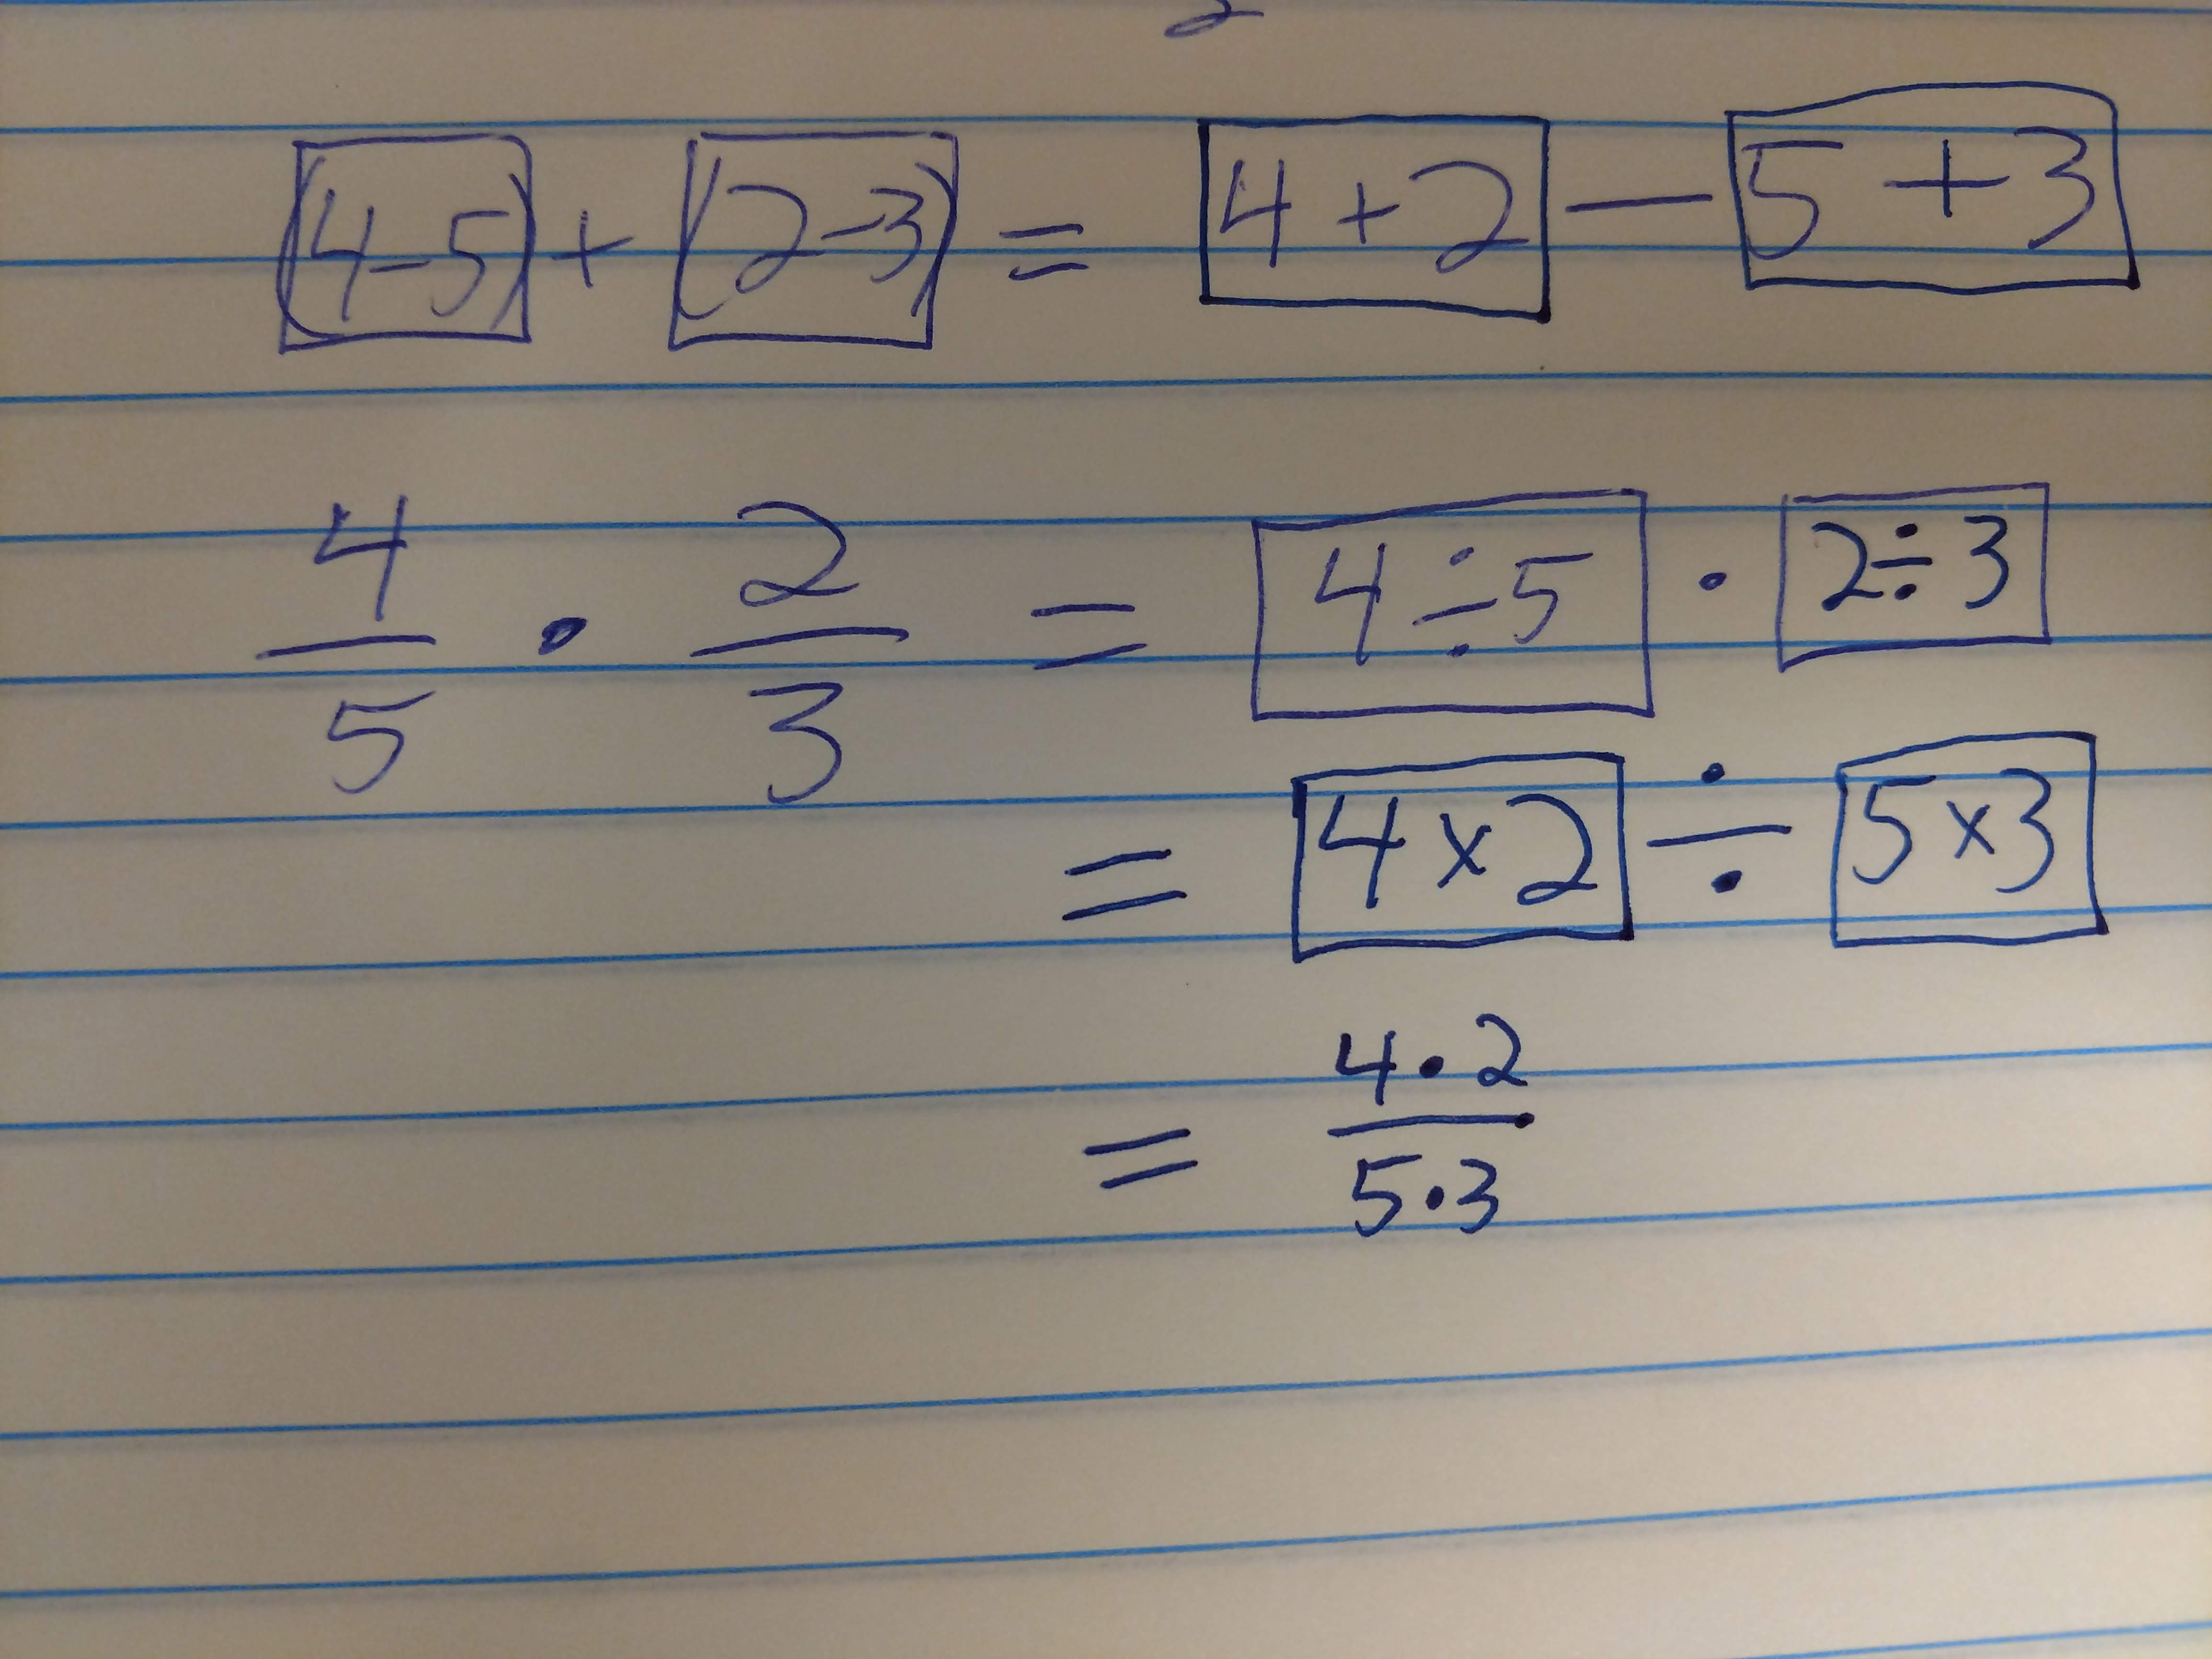 (4-5) + (2-3) = 4 + 2 — 5 + 3
4/5 · 2/3 = 4 ÷ 5 · 2 ÷ 3
= 4 × 2 ÷ 5 × 3
= 4 · 2 / 5 · 3